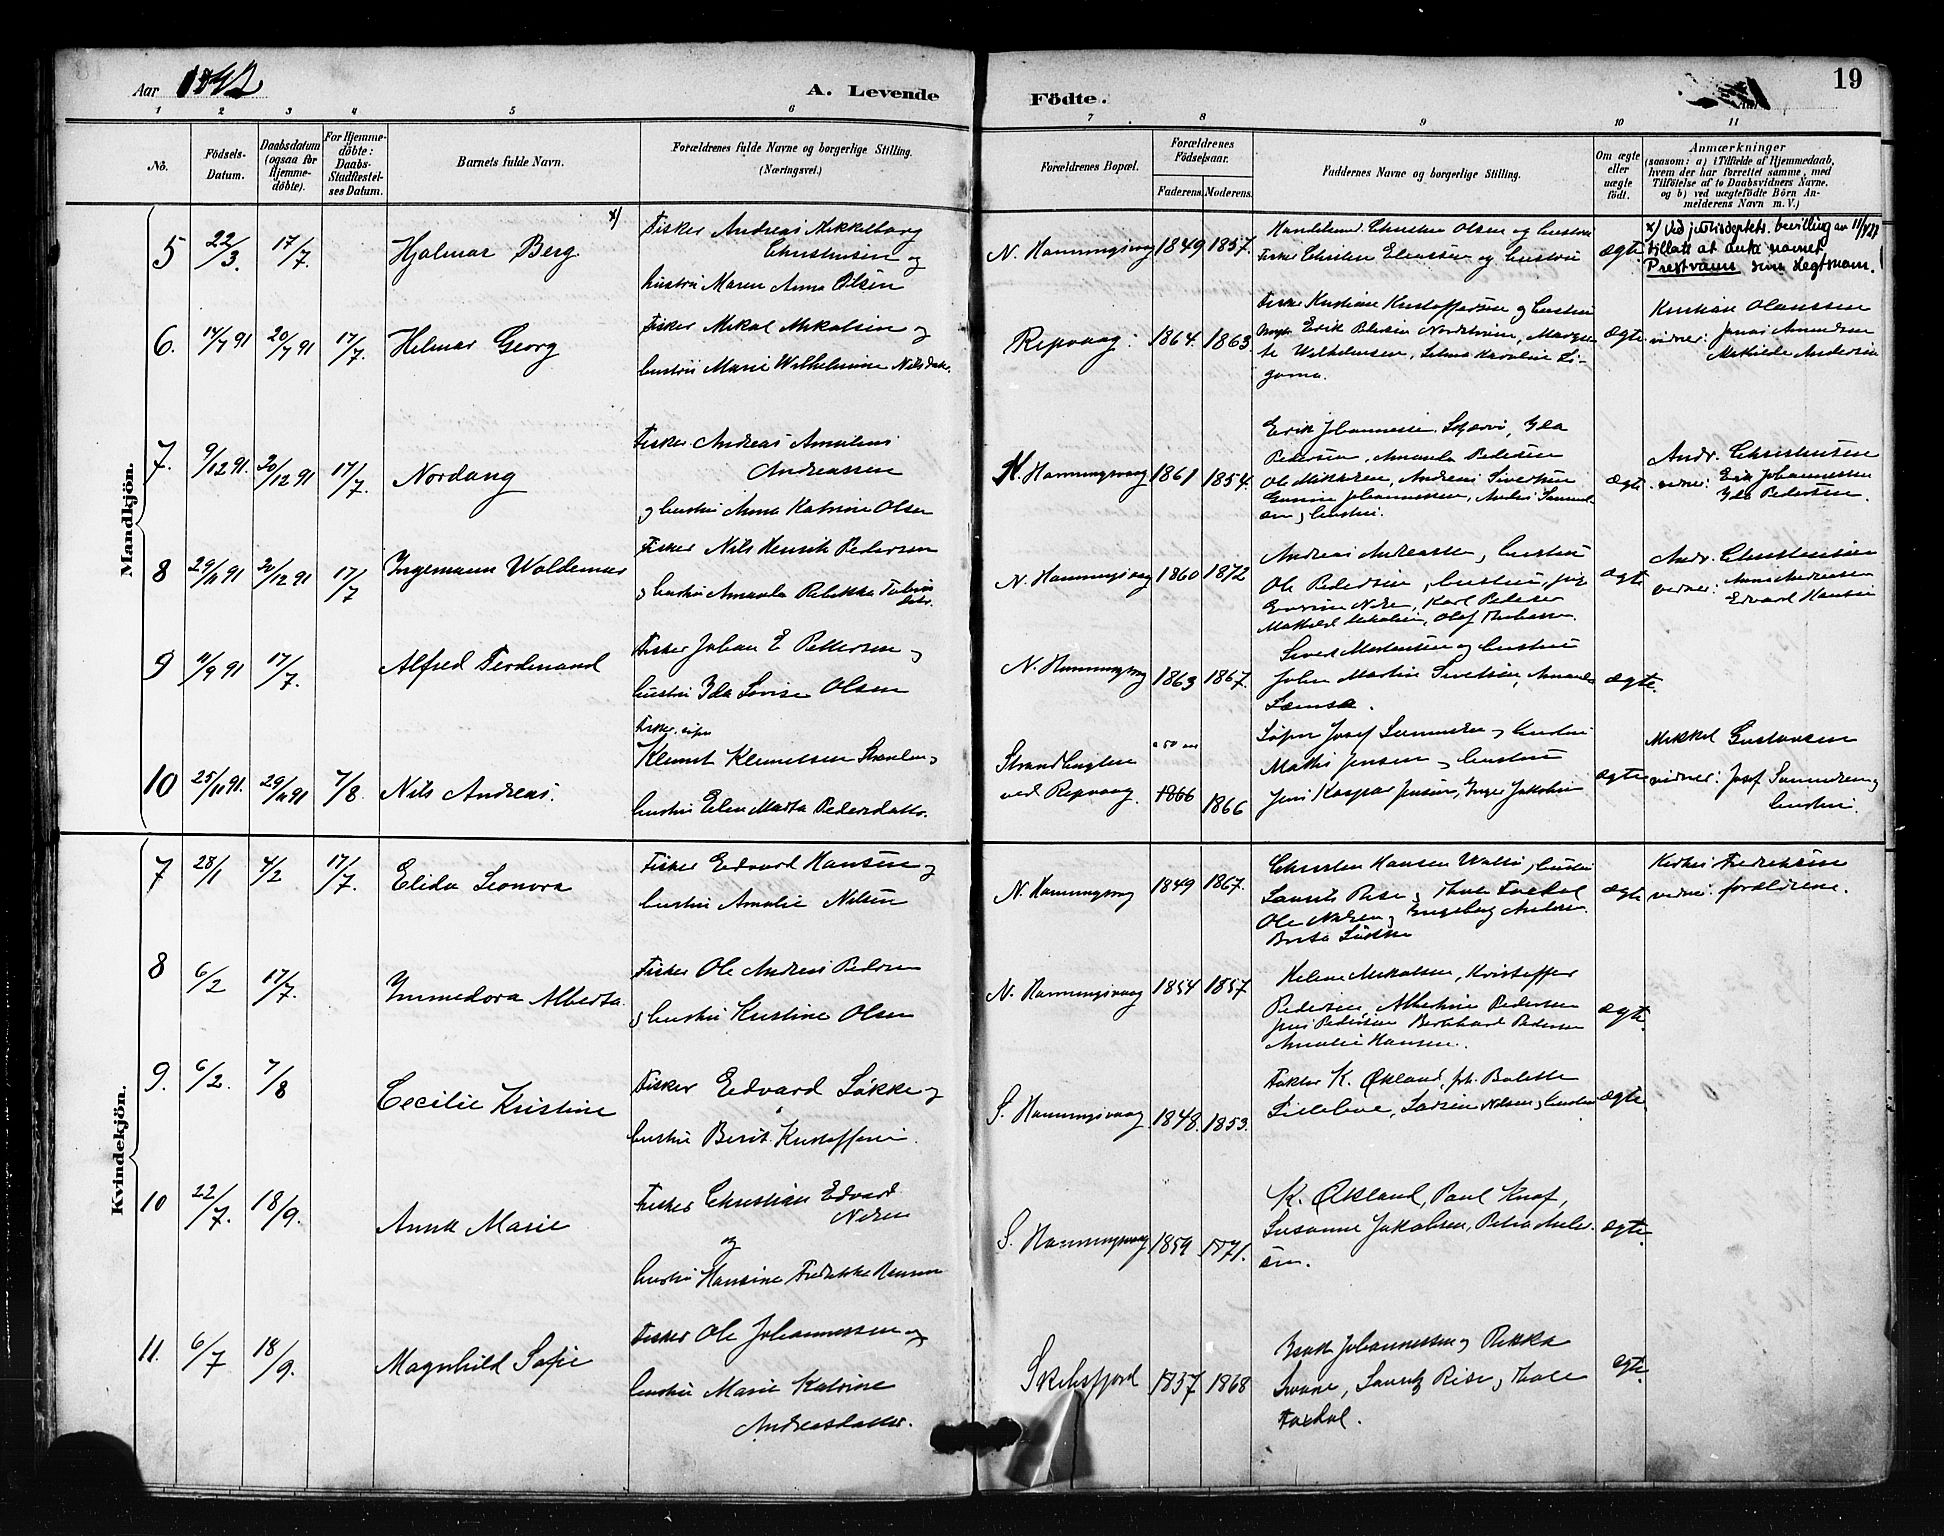 Aar 1892
A. Levende Födte.
19
1 2 3 4 5 6 7 8 9 10 11
Nö.
Födsels-Datum.
Daabsdatum (ogsaa for Hjemmedöbte).
For Hjemmedöbte: Daabs-Stadfæstelses Datum.
Barnets fulde Navn.
Forældrenes fulde Navne og borgerlige Stilling. (Næringsvei.)
Forældrenes Bopæl.
Forældrenes Födselsaar.
Faderens. Moderens.
Faddernes Navne og borgerlige Stilling.
Om ægte eller uægte født.
Anmærkninger
(saasom: a) i Tilfælde af Hjemmedaab,
hvem der har forrettet samme, med
Tilföielse af to Daabsvidners Navne.
og b) ved uægtefödte Börn Anmelderens Navn m. V.)
Mandkjön.
5 22/3. 17/7. Hjalmar Berg x)
Fisker Andreas Mikkelborg
Christensen og
hustru Maren Anna Olsen
N. Honningsvaag 1849 1857.
Handelsmd. Christen Olsen og hustru
Fisker Christen Eliassen og hustru
ægte
x) Ved justisdeptets. bevilling av
tillatt at anta navnet
Prestvann som slegtsnavn.
6. 14/7 91 20/7 91 17/7. Helmar Georg
Fisker Mikal Mikalsen og
hustru Marie Wilhelmine Nilsdatr.
Repvaag. 1864. 1863
Fisker Kristian Kristoffersen og hustru
Erik Petersen Nordstrøm, Margre-
te Wilhelmsen, Selma Karoline
ægte
Kristian Olaussen
vidner: Jonas Amundsen
Mathilde Andersen
7. 9/12 91. 20/12 91 17/7. Nordang
Fisker Andreas Amulius
Andreassen
og hustru Anna Katrine Olsen
N. Honningsvaag 1861 1854.
Erik Johannessen Skjærvø, Ida
Pedersen, Amanda Pedersen
Ole Mikkelsen, Andreas Sivertsen
Johannessen, Anders Samuel-
sen og hustru.
ægte
Andr. Christensen
vidner: Erik Johannessen
Ida Pedersen.
8 29/11 91 20/12 91 17/7 Ingemann Waldemar
Fisker Nils Henrik Pedersen
og hustru Amanda Rebekka Tobias
datr.
N. Honningsvaag 1860 1872
Andreas Andreassen og hustru
Ole Pedersen og hustru, pige
Nilsen, Karl Pedersen
Mathilde Mikalsen, Olaf
ægte
Andr. Christensen
vidner: Anna Andreasen
Edvard Hansen
9 11/9 91 17/7. Alfred Ferdinand
Fisker Johan E Pettersen og
hustru Ida Lovise Olsen
N. Honningsvaag 1863 1867.
Sivert Mortensen og hustru
John Martin Sivertsen, Amanda
ægte.
10 25/10 91. 29/11 91 7/8. Nils Andreas.
Fisker
Klemet Klemetsen og
hustru Elen Marta Pedersdatter.
Strandbugten
ved Repvaag. 1866 1866
Josef Samuelsen og hustru
Mathis Jensen og hustru
Jens Kaspar Jensen, Inger Jakobsen
ægte
Mikkel Gustavsen
vidner: Josef Samuelsen og
hustru.
Kvindekjön.
7 28/1 4/2 17/7. Elida Leonora
Fisker Edvard Hansen og
hustru Amalie Nilsen
N. Honningsvaag 1849 1867.
Christen Hansen og hustru
Laurits Rise og Thale Foxdal
Ole Nilsen og Ingeborg Andersen
Berta Søkke
ægte
Fredriksen
vidner: forældrene.
8 6/2 17/7. Immedora Alberta
Fisker Ole Andreas Pedersen
og hustru Kristine Olsen
N. Honningsvaag 1854 1857
Helene Mikalsen, Kristoffer
Pedersen, Albertine Pedersen
Jens Pedersen Bernhard Pedersen
Amalie Hansen.
ægte.
9. 6/2. 7/8 Cecilie Kristine
Fisker Edvard Søkke og
hustru Berit Kristoffersen.
S. Honningsvaag 1848. 1853.
Faktor K. Økland, frk. Bolette
Lillebove, Nilsen og hustru
ægte.
10 22/7. 18/9. Anna Marie
Fisker Christian Edvard
Nilsen
og
hustru Hansine Fredrikke Hansen
S. Honningsvaag 1859 1871.
K. Økland, Paul Knof,
Susanne Jakobsen, Petra
sen.
ægte.
11. 6/7 18/9. Magnhild Sofie
Fisker Ole Johannessen og
hustru Marie Katrine
Andreasdatter.
1857 1868
Johannessen og Rikka
Laurits Rise og Thale
Foxdal.
ægte.